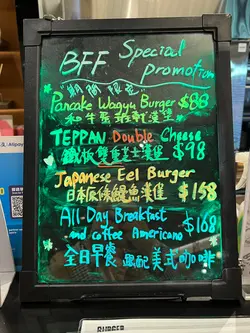 BFF Special
promotion
"期間限定"
Pancake Wagyu Burger $88
和牛班戟漢堡
TEPPAN Double Cheese
鐵板雙重芝士漢堡 $98
Japanese Eel Burger
日本原條鰻魚漢堡 $158
All-Day Breakfast
and coffee Americano $168
全日早餐 跟配美式咖啡
Alipay
BURGER